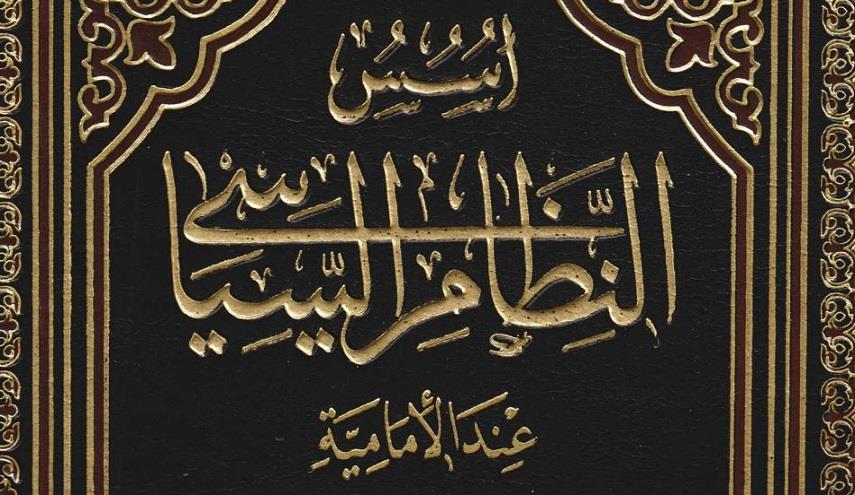 اُسُسُ
النِّظَامِ السِّيَاسِي
عِنْدَ الْأَمَامِيَّةِ